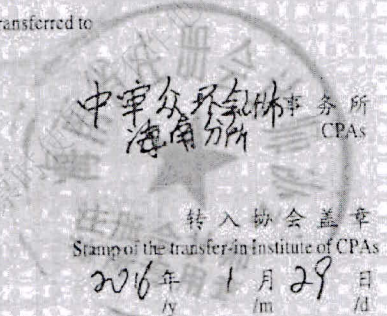 ransferred to
中审众环会计师事务所
海南分所
CPAs
转入协会盖章
Stamp of the transfer-in Institute of CPAs
2016年1月29日
/y /m /d